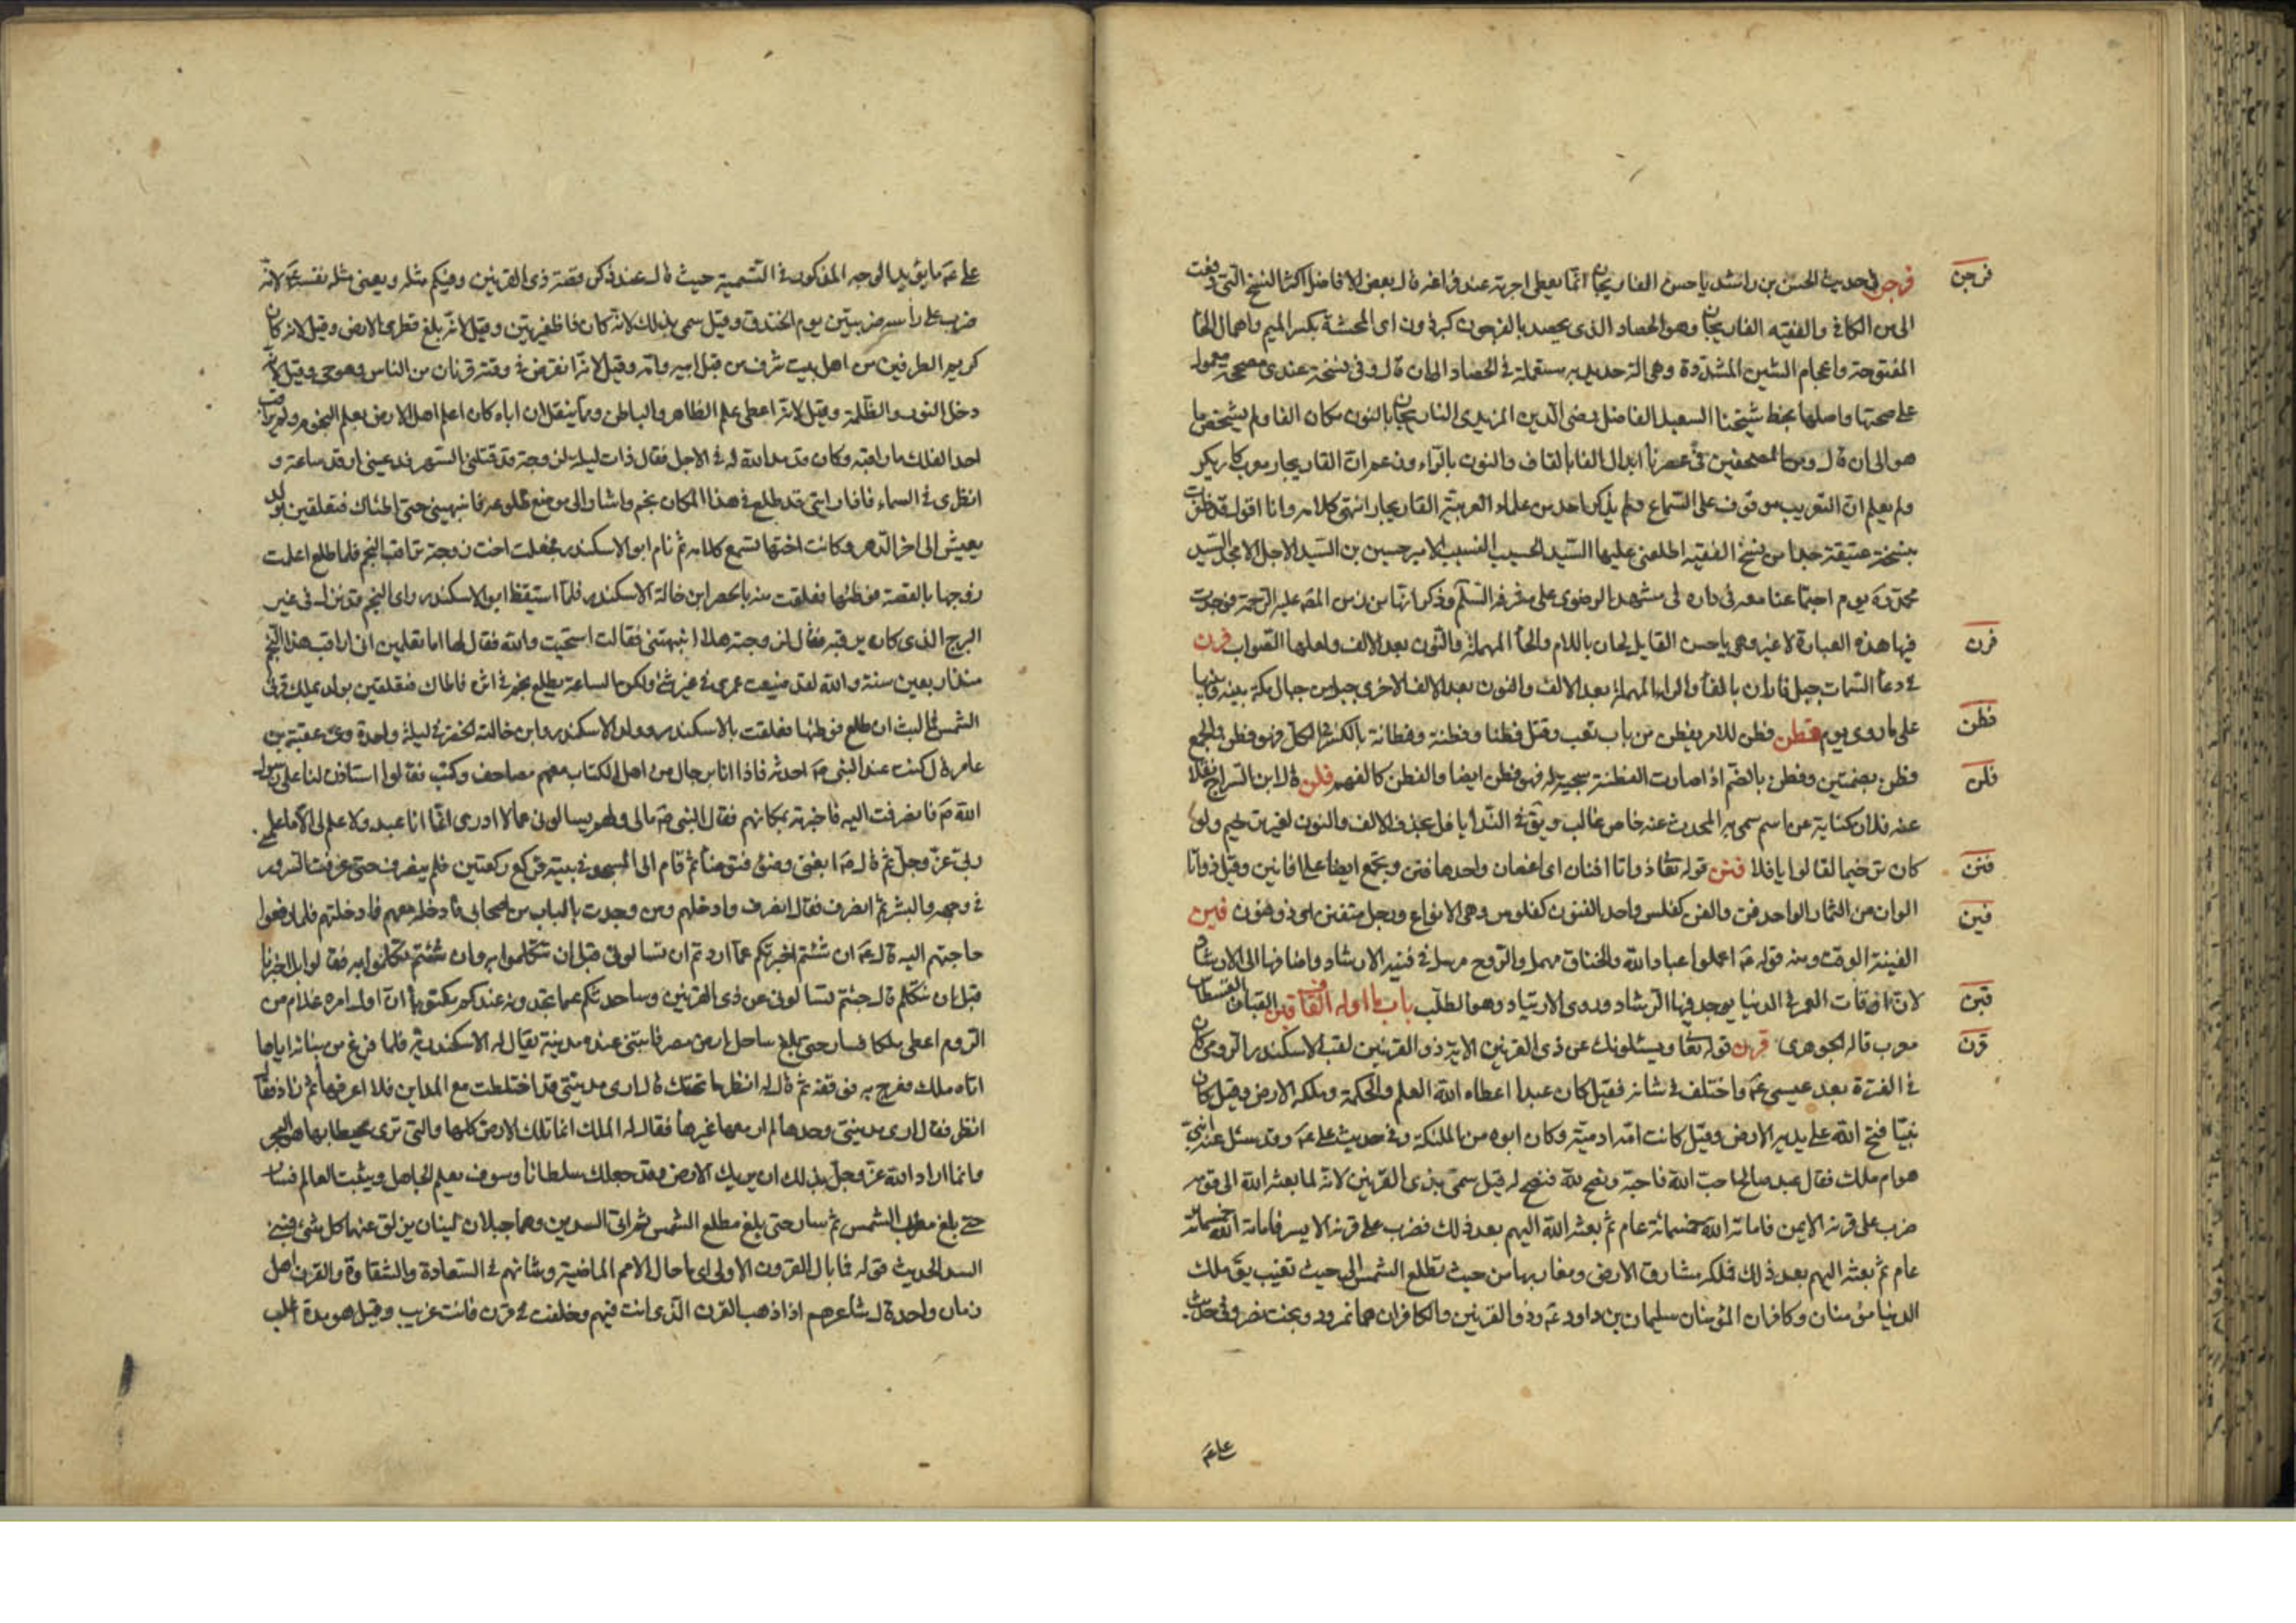 فرجن
فرجن في حديث الحسن بن راشد يا حسن الفاريجان انما يعطى اجرته عند فراغه قال بعض الافاضل اكثر النسخ التي رفعت
الى من الكافي والفقيه الفاريجان وهو الحصاد الذي يحصد بالفرجون كبرذون اى المحشة بكسر الميم واهمال الحا
المفتوحة واعجام الشين المشددة وهى الة حديدية مستعملة في الحصاد الان قال وفي نسخة عندى مصححة معول
على صحتها واصلها بخط شيخنا السعيد الفاضل رضى الدين المزيدى الناريجان بالنون مكان الفا ولم يشخص ما
هو الى ان قال ومن المصحفين في عصرنا ابدال الفا بالقاف والنون بالراء وزعم ان القاريجار معرب كاريكر
ولم يعلم ان التعريب موقوف على السماع ولم يذكر احد من علماء العربية القاريجار انتهى كلامه وانا اقول قد ظفرت
بنسخة عتيقة جدا من نسخ الفقيه اطلعنى عليها السيد الحسيب النسيب الامير حسين بن السيد الاجل الامجد السيد
محمد يوم اجتماعنا معه في داره في مشهد الرضوى على مشرفه السلم وذكر انها من زمن المص عليه الرحمة فوجدت
فيها هذه العبارة لا غير وهى يا حسن القايل لحان باللام والحا المهملة والنون بعد الالف ولعلها الصواب فرن
فرن
في دعا السمات جبل فاران بالفا والراء المهملة بعد الالف والنون بعد الالف الاخرى جبل من جبال مكة بينه وبينها
على ما روى يوم فطن فطن للامر يفطن من باب تعب وقتل فطنا وفطنة وفطانة بالكسر في الكل فهو فطن والجمع
فطن
فطن بضمتين وفطن بالضم اذا صارت الفطنة سجية له فهو فطن ايضا والفطن كالفهم فلن قال ابن السراج نقلا
فلن
عنه فلان كناية عن اسم سمى به المحدث عنه خاص غالب ويق في الندا يا فل بحذف الالف والنون لغير ترخيم ولو
كان ترخيما لقالوا يا فلا فنن قوله تعا ذواتا افنان اى اغصان واحدها فنن ويجمع ايضا على افانين وقيل ذواتا
فنن
الوان من الثمار الواحد فن والفن كفلس واحد الفنون كفلوس وهى الانواع ورجل متفنن اى ذو فنون فين
فين
الفينة الوقت ومنه قوله ع اعملوا عباد الله والخناق مهمل والروح مرسل في فنية الارشاد واضافها الى الارشاد
لان اوقات العمر في الدنيا يوجد فيها الرشاد وروى الارتياد وهو الطلب باب ما اوله القاف قبن القبان القسطاس
قبن
معرب قاله الجوهرى قرن قوله تعا ويسئلونك عن ذى القرنين الاية ذو القرنين لقب الاسكندر الرومى كان
قرن
في الفترة بعد عيسى ع واختلف في شانه فقيل كان عبدا اعطاه الله العلم والحكمة وملكه الارض وقيل كان
نبيا فتح الله على يديه الارض وقيل كانت امه ادمية وكان ابوه من الملئكة وفي حديث على ع وقد سئل عنه انبي
هو ام ملك فقال عبد صالح احب الله فاحبه ونصح لله فنصح له قيل سمى بذى القرنين لانه لما بعثه الله الى قومه
ضرب على قرنه الايمن فاماته الله خمسمائة عام ثم بعثه الله اليهم بعد ذلك فضرب على قرنه الايسر فاماته الله خمسمائة
عام ثم بعثه اليهم بعد ذلك فملكه مشارق الارض ومغاربها من حيث تطلع الشمس الى حيث تغيب يق ملك
الدنيا مؤمنان وكافران المؤمنان سليمان بن داود ع وذو القرنين والكافران هما نمرود وبخت نصر وفي حديث
على ع
على ع ما يؤيد الوجه المذكور في التسمية حيث قال عند ذكر قصة ذى القرنين وفيكم مثله ويعنى مثله نفسه ع لانه
ضرب على رأسه ضربتين يوم الخندق وقيل سمى بذلك لانه كان ذا ظفيرتين وقيل لانه بلغ قطرى الارض وقيل لانه كان
كريم الطرفين من اهل بيت شرف من قبل ابيه وامه وقيل لانه انقرض في وقته قرنان من الناس وهو حى وقيل لانه
دخل النور والظلمة وقيل لانه اعطى علم الظاهر والباطن ومما ينقل ان اباه كان اعلم اهل الارض بعلم النجوم ولم يراقب
احد الفلك ما راقبه وكان قد مد الله له في الاجل فقال ذات ليلة لزوجته قد قتلنى السهر فدعينى ارقد ساعة و
انظرى في السماء فاذا رايتى قد طلع في هذا المكان نجم واشار الى موضع طلوعه فانبهينى حتى اطئك فتعلقين بولد
يعيش الى اخر الدهر وكانت اختها تسمع كلامه ثم نام ابو الاسكندر فجعلت اخت زوجته تراقب النجم فلما طلع اعلمت
زوجها بالقصة فوطئها فعلقت منه بالخضر ابن خالة الاسكندر فلما استيقظ ابو الاسكندر راى النجم قد نزل في غير
البرج الذى كان يرقبه فقال لزوجته هلا انبهتنى فقالت استحييت والله فقال لها اما تعلمين انى اراقب هذا النجم
منذ اربعين سنة والله لقد ضيعت عمرى في غير شئ ولكن الساعة يطلع نجم في اثره فاطاك فتعلقين بولد يملك قرنى
الشمس فما لبث ان طلع فوطئها فعلقت بالاسكندر وولد الاسكندر وابن خالته الخضر في ليلة واحدة وعن عقبة بن
عامر قال كنت عند النبى ص احدثه فاذا انا برجال من اهل الكتاب معهم مصاحف وكتب فقالوا استاذن لنا على رسول
الله ص فانصرفت اليه فاخبرته بمكانهم فقال النبى ص مالى ولهم يسالونى عما لا ادرى انما انا عبد ولا علم لى الا ما علمنى
ربى عز وجل ثم قال ص ابغنى وضوء فتوضأ ثم قام الى المسجد في بيته فركع ركعتين فلم ينصرف حتى عرفت السرور
في وجهه والبشر ثم انصرف فقال انصرف وادخلهم ومن وجدت بالباب من اصحابى فادخله معهم فادخلتهم فلما رفعوا
حاجتهم اليه قال ع ان شئتم اخبرتكم عما اردتم ان تسالونى قبل ان تتكلموا به وان شئتم تكلموا به فقالوا بل اخبرنا
قبل ان نتكلم قال جئتم تسالونى عن ذى القرنين وساحدثكم عما تجدونه عندكم مكتوبا ان اول امره غلام من
الروم اعطى ملكا فسار حتى بلغ ساحل ارض مصر فابتنى عنده مدينة يقال له الاسكندرية فلما فرغ من بنائه اياها
اتاه ملك فعرج به فوقفه ثم قال له انظر ما تحتك قال ارى مدينتى قد اختلطت مع المداين فلا اعرفها ثم زاد فقال
انظر فقال ارى مدينتى وحدها لم ار معها غيرها فقال له الملك انما تلك الارض كلها والتى ترى محيطا بها هو البحر
وانما اراد الله عز وجل بذلك ان يريك الارض وقد جعلك سلطانا وسوف يعلم الجاهل ويثبت العالم فسار
حتى بلغ مغرب الشمس ثم سار حتى بلغ مطلع الشمس ثم اتى السدين وهما جبلان لينان يزلق عنهما كل شئ فبنى
السد الحديث قوله فما بال القرون الاولى اى ما حال الامم الماضية وشانهم في السعادة والشقاوة والقرن اهل
زمان واحد قال شاعرهم اذا ذهب القرن الذى انت فيهم وخلفت في قرن فانت غريب وقيل هو مدة اغلب